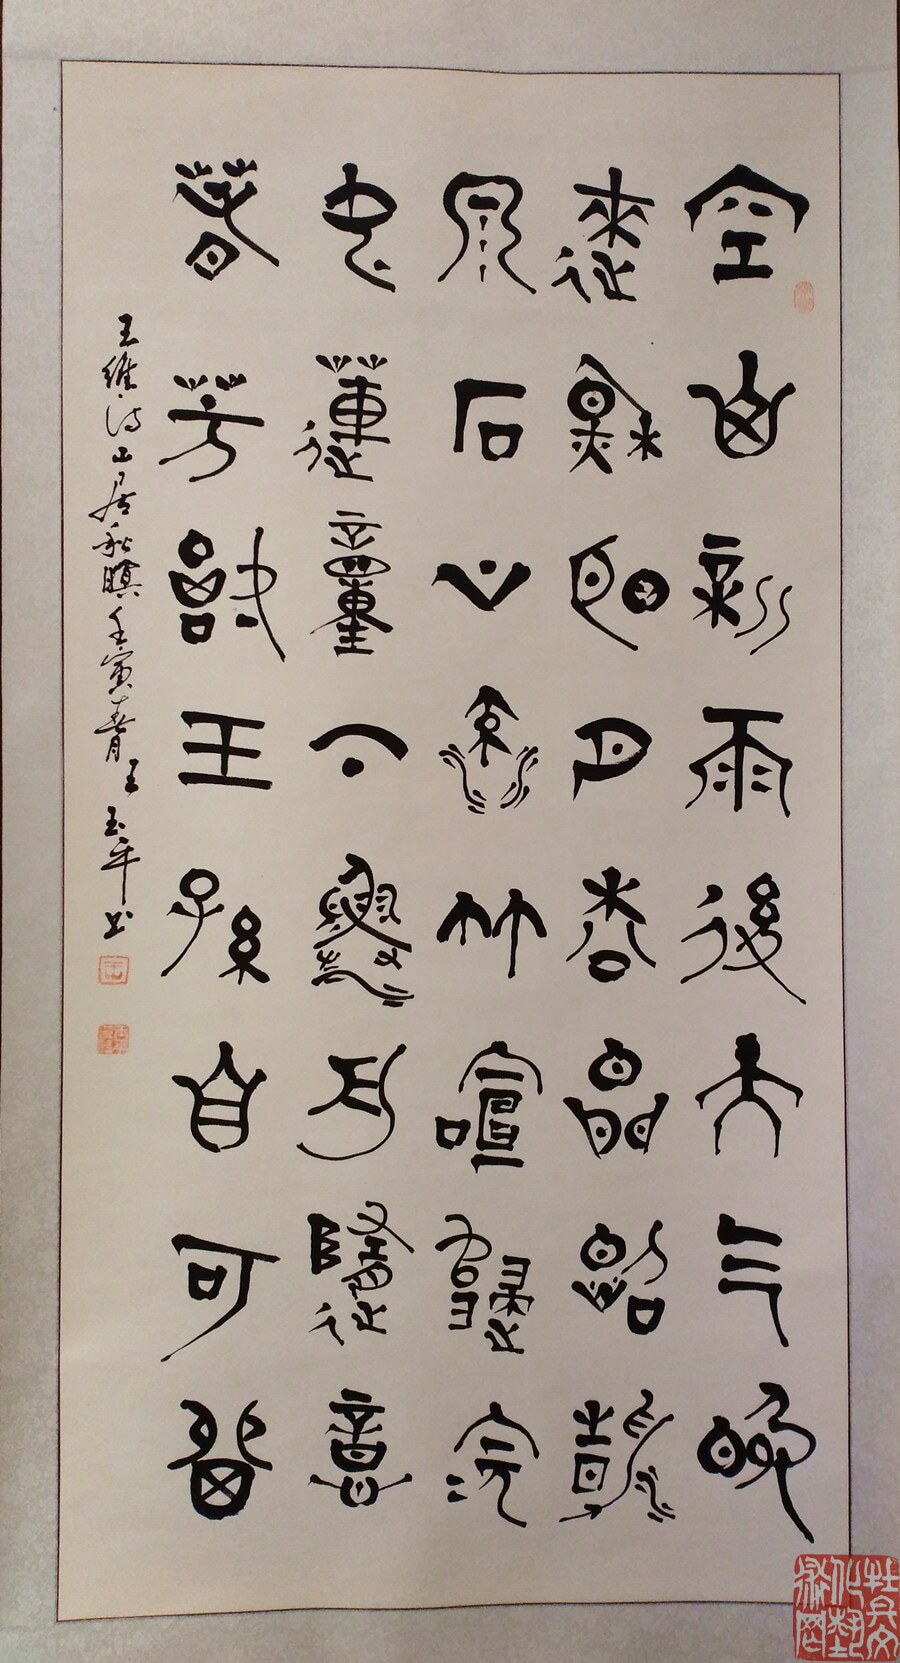 空山新雨後天气晚
來秋明月松間照清
泉石上流竹喧歸浣
女蓮動下漁舟隨意
春芳歇王孫自可留
王維诗山居秋暝壬寅春月王玉平书